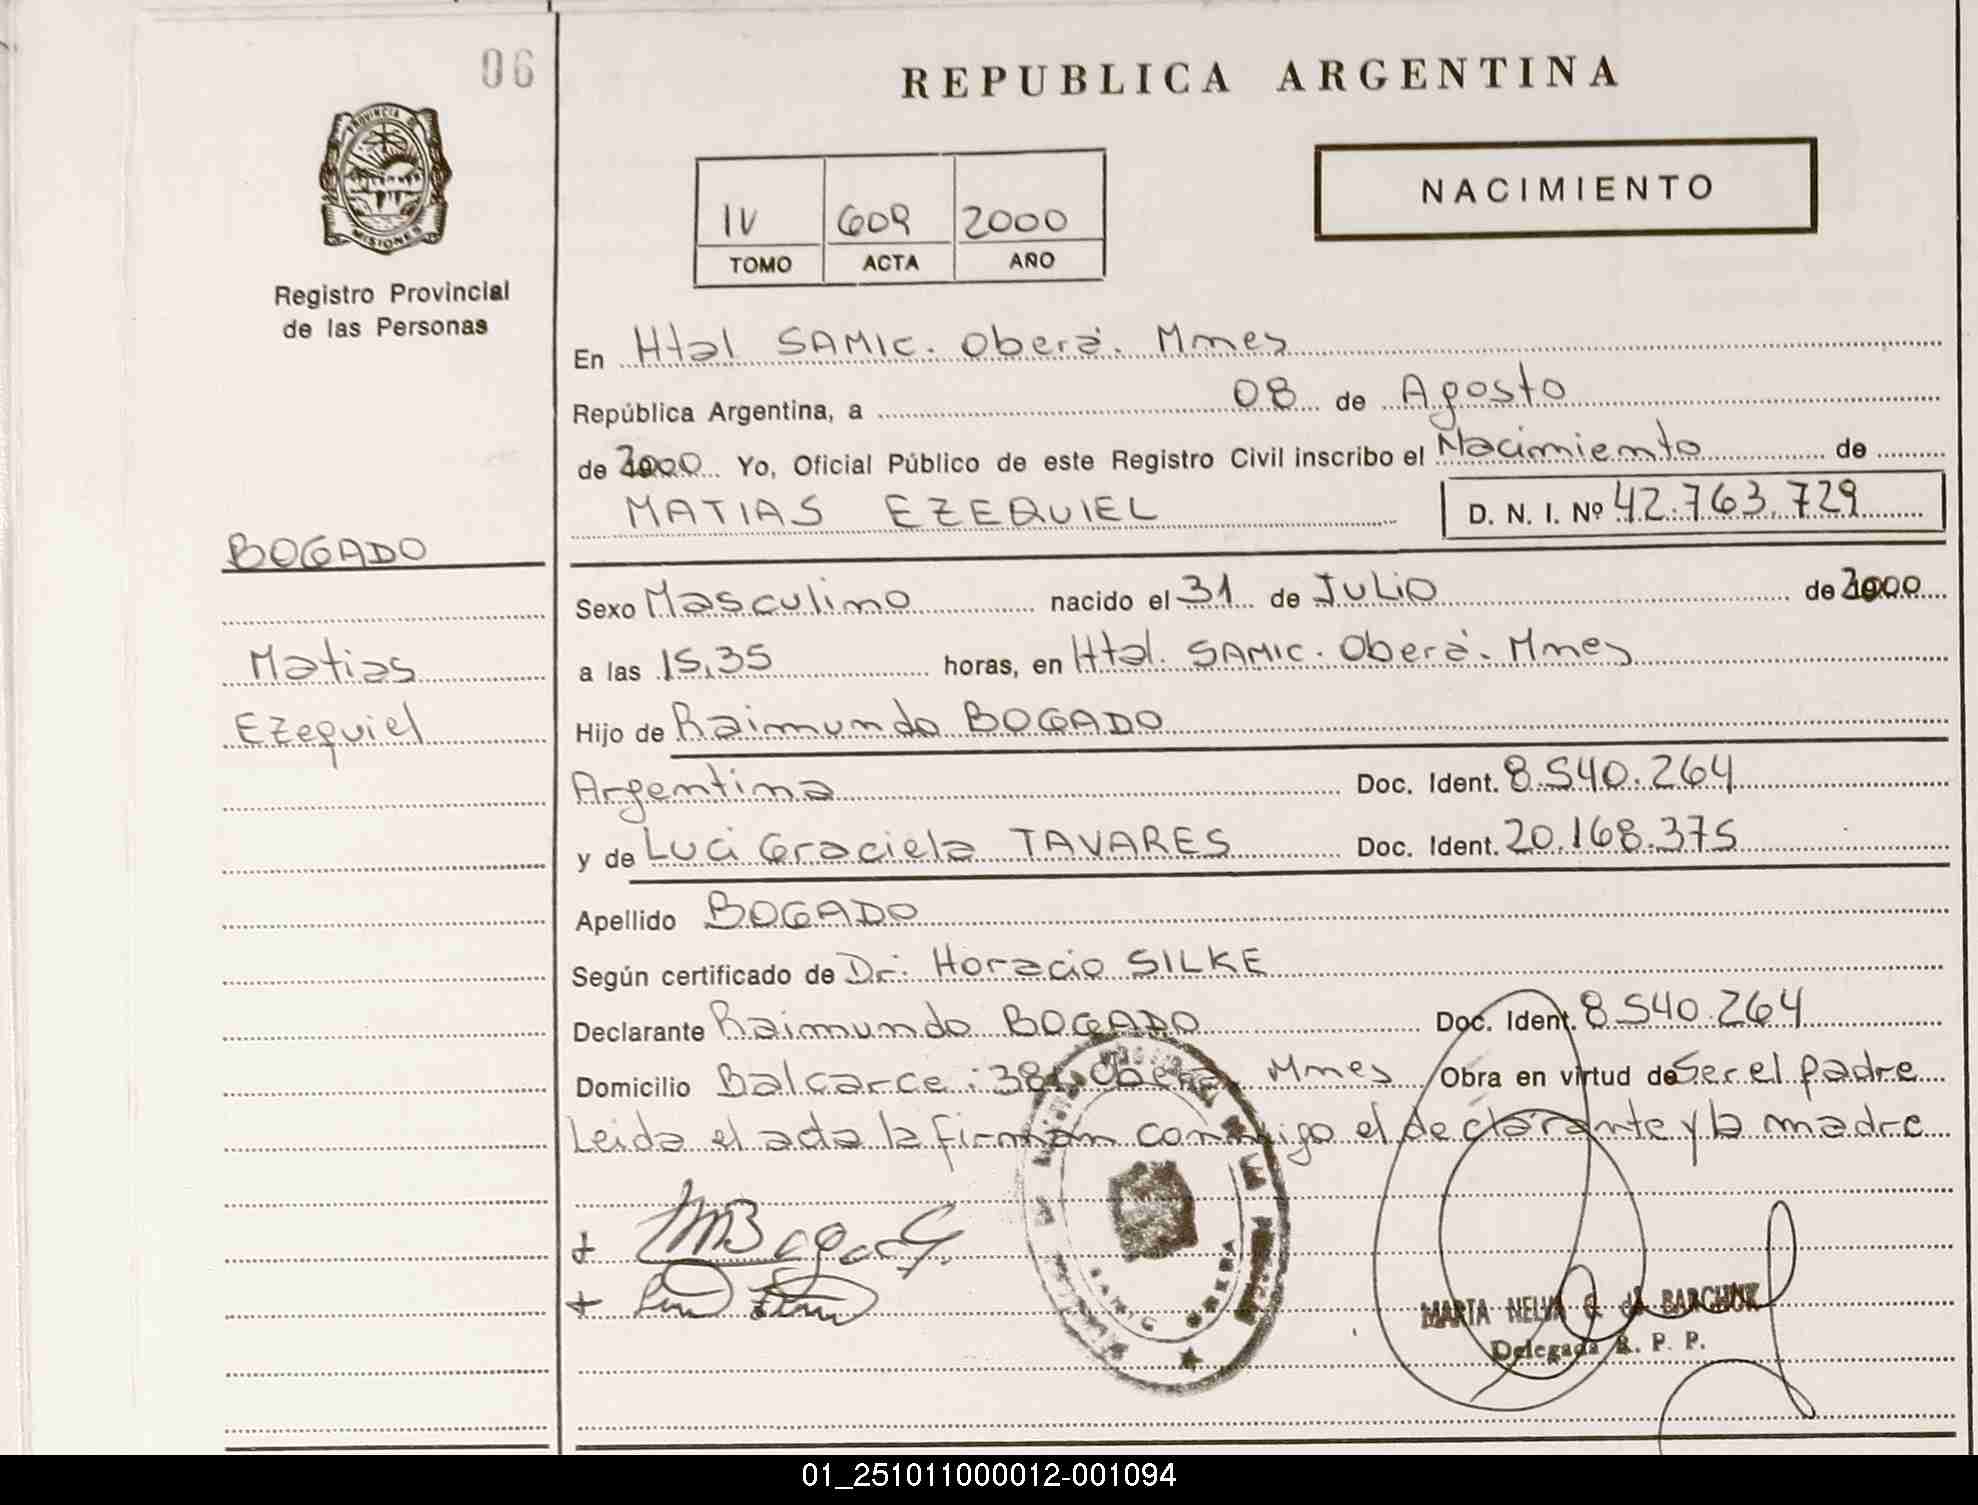 06
REPUBLICA ARGENTINA
PROVINCIA DE
MISIONES
Registro Provincial
de las Personas
NACIMIENTO
IV 609 2000
TOMO ACTA AÑO
En Htal SAMIC. Oberá. Mnes
República Argentina, a 08 de Agosto
de 2000 Yo, Oficial Público de este Registro Civil inscribo el Nacimiento de
MATIAS EZEQUIEL D. N. I. Nº 42.763.729
BOGADO
Matias
Ezequiel
Sexo Masculino nacido el 31 de Julio de 2000
a las 15,35 horas, en Htal. SAMIC. Oberá. Mnes
Hijo de Raimundo BOGADO
Argentina Doc. Ident. 8.540.264
y de Luci Graciela TAVARES Doc. Ident. 20.168.375
Apellido BOGADO
Según certificado de Dr: Horacio SILKE
Declarante Raimundo BOGADO Doc. Ident. 8.540.264
Domicilio Balcarce: Oberá Mnes Obra en virtud de Ser el padre
Leida el acta la firman conmigo el declarante y la madre
SAMIC OBERA
MARTA NELVA G. de BARCHUK
Delegada R. P. P.
01_251011000012-001094